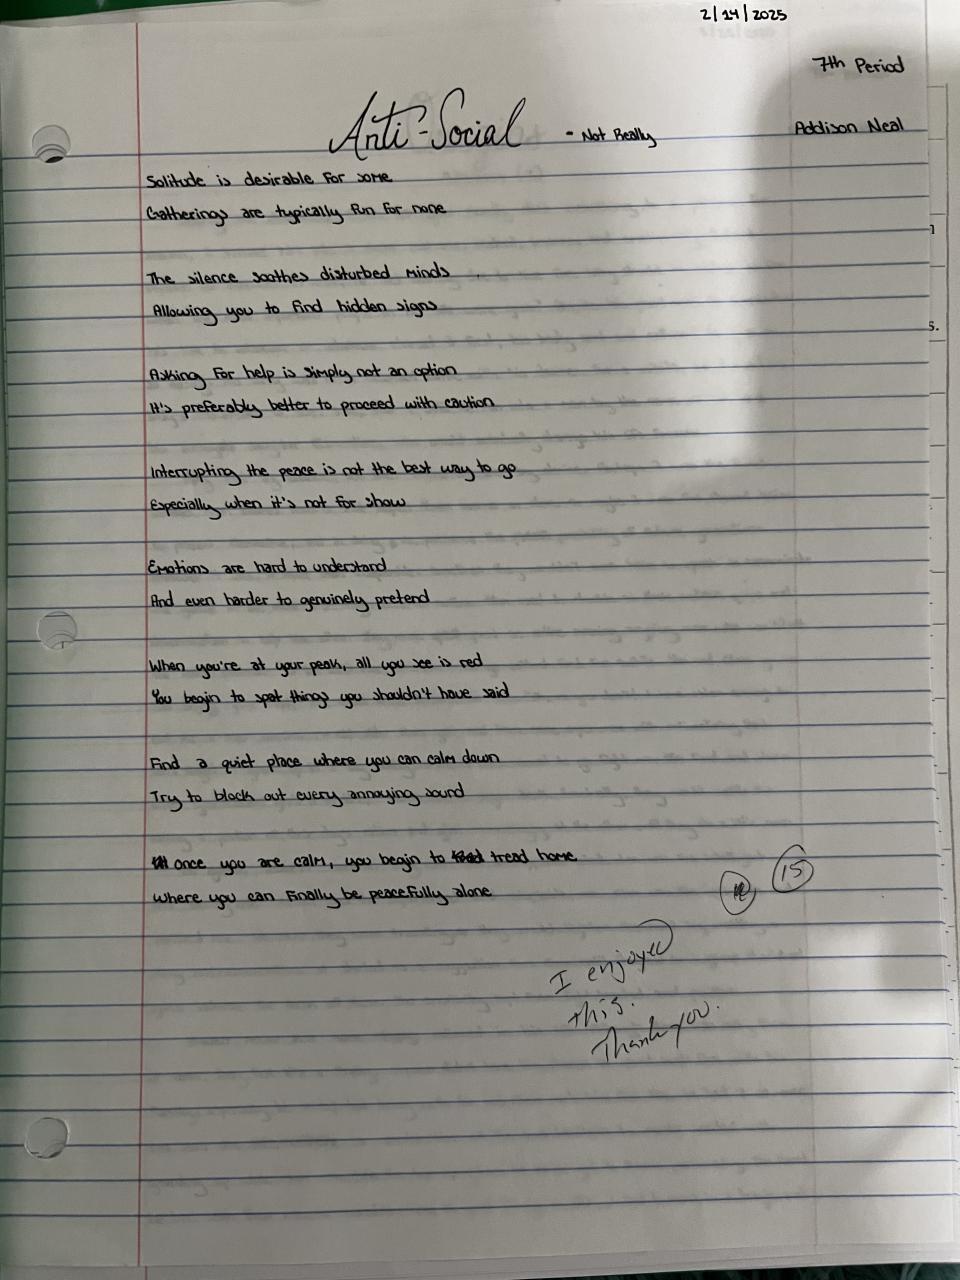 2/14/2025
7th Period
Anti-Social - Not Really
Addison Neal
Solitude is desirable for some
Gatherings are typically fun for none
The silence soothes disturbed minds
Allowing you to find hidden signs
Asking for help is simply not an option
It's preferably better to proceed with caution
Interrupting the peace is not the best way to go
Especially when it's not for show
Emotions are hard to understand
And even harder to genuinely pretend
When you're at your peak, all you see is red
You begin to spat things you shouldn't have said
Find a quiet place where you can calm down
Try to block out every annoying sound
once you are calm, you begin to tread home
where you can finally be peacefully alone
15
I enjoyed
this.
Thank you.